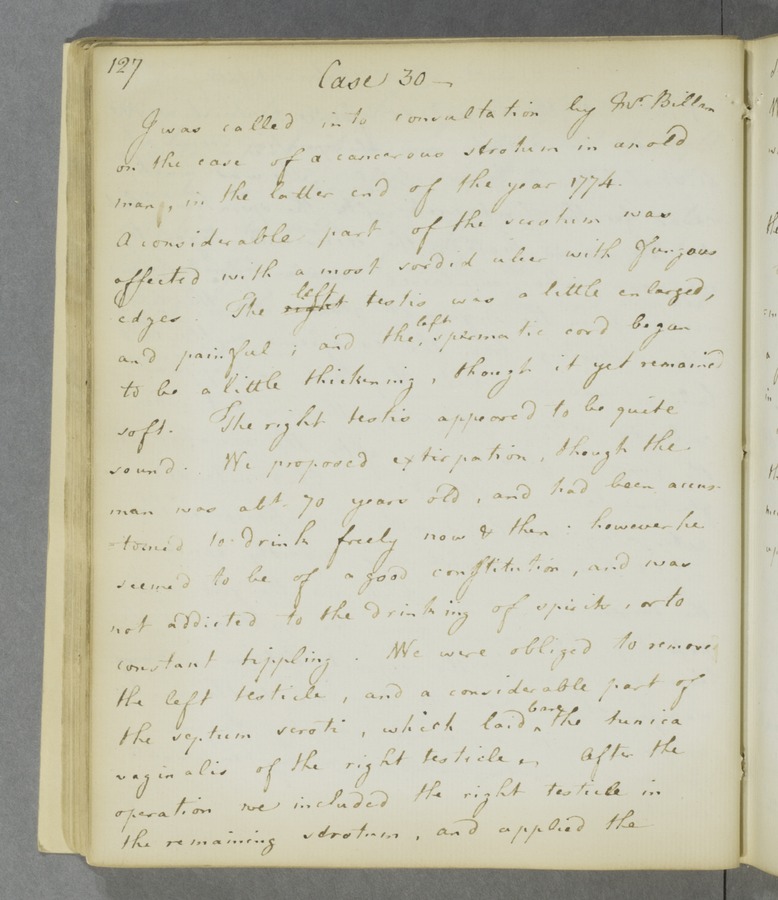 127
Case 30 —
I was called into consultation by Mr. Billam
on the case of a cancerous scrotum in an old
man, in the latter end of the year 1774.
A considerable part of the scrotum was
affected with a most sordid ulcer with fungous
edges. The right left testis was a little enlarged,
and painful; and the left spermatic cord began
to be a little thickening, though it yet remained
soft. The right testis appeared to be quite
sound. We proposed extirpation, though the
man was abt. 70 years old, and had been accus-
-tomed to drink freely now & then: however he
seemed to be of a good constitution, and was
not addicted to the drinking of spirits, or to
constant tippling. We were obliged to remove
the left testicle, and a considerable part of
the septum scroti, which laid bare the tunica
vaginalis of the right testicle. After the
operation we included the right testicle in
the remaining scrotum, and applied the